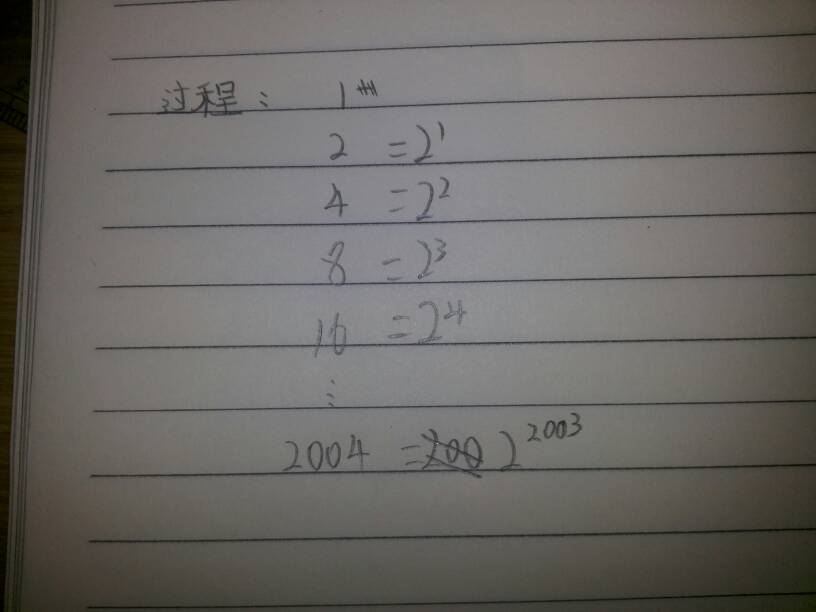 过程： 1
2 = 2¹
4 = 2²
8 = 2³
16 = 2⁴
⋮
2004 = 2²⁰⁰³